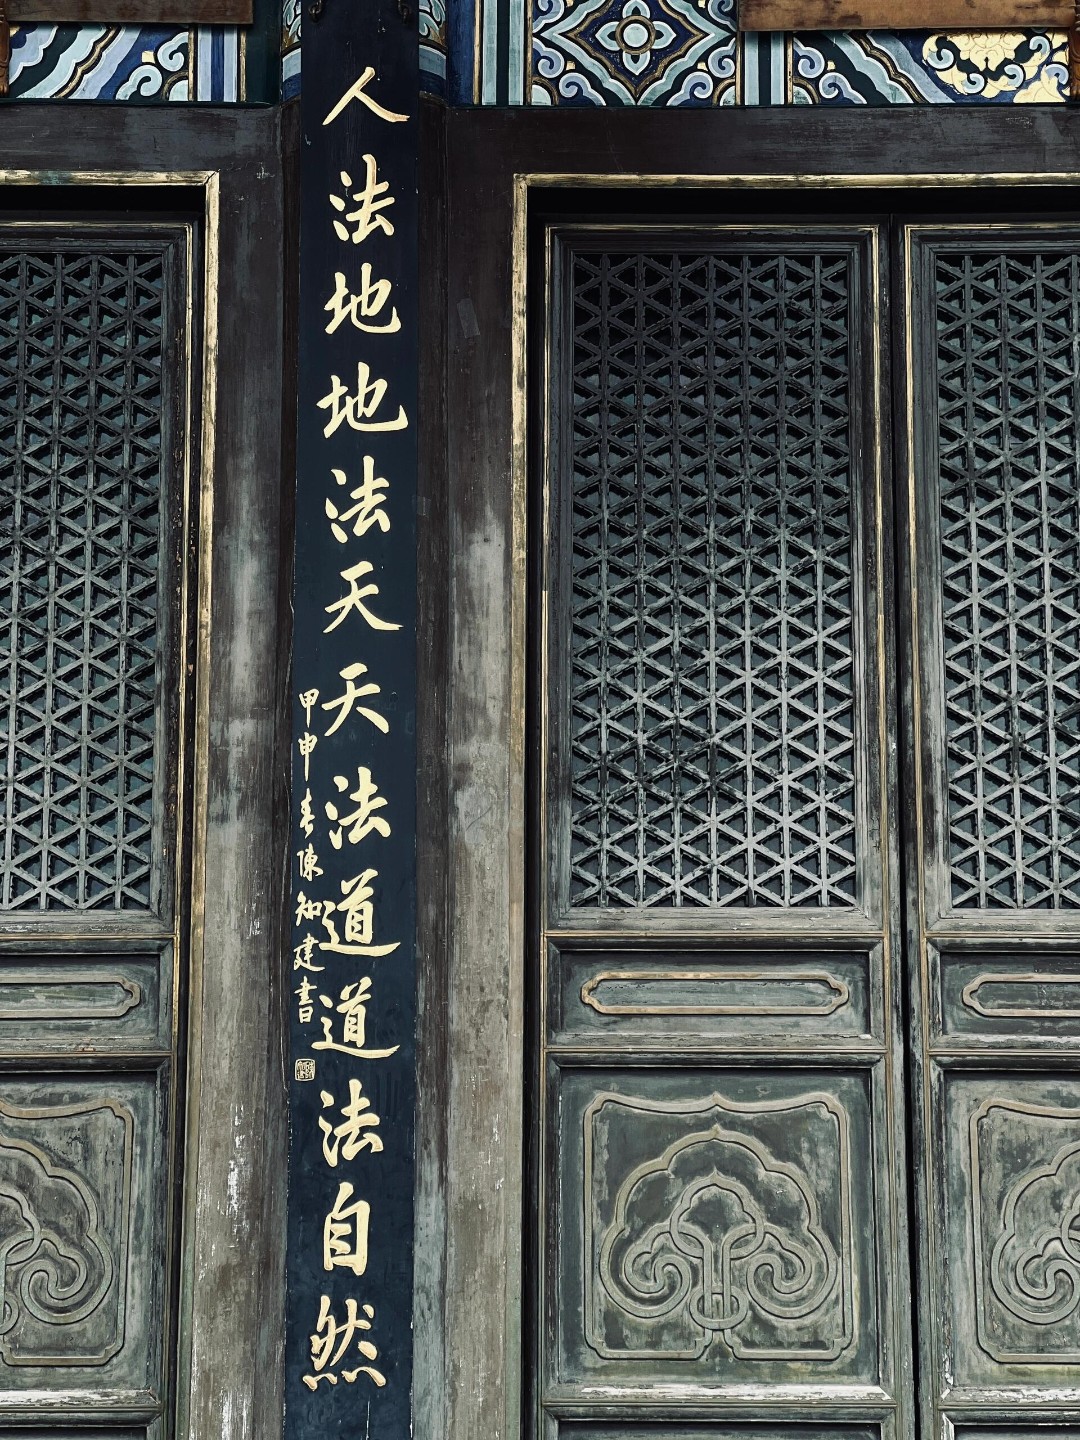 人法地地法天天法道道法自然
甲申春陳知建書